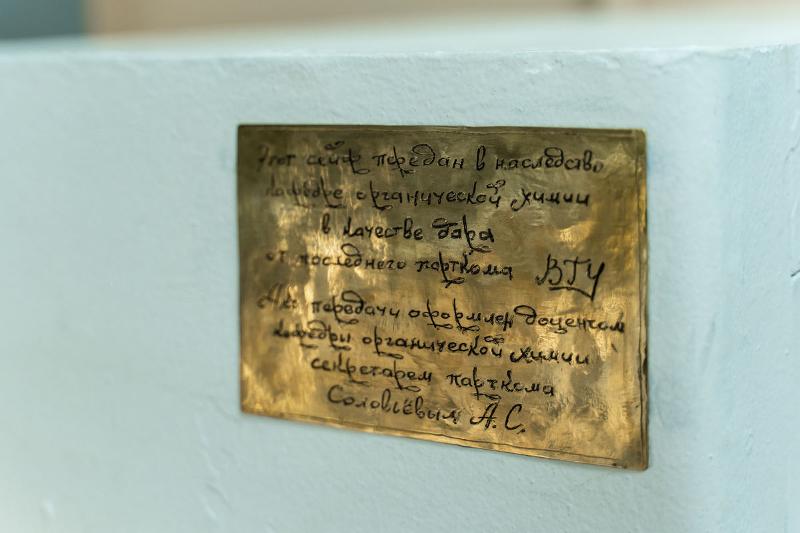 Этот сейф передан в наследство
кафедре органической химии
в качестве дара
от последнего парткома ВГУ
Акт передачи оформлен доцентом
кафедры органической химии
секретарём парткома
Соловьёвым А.С.